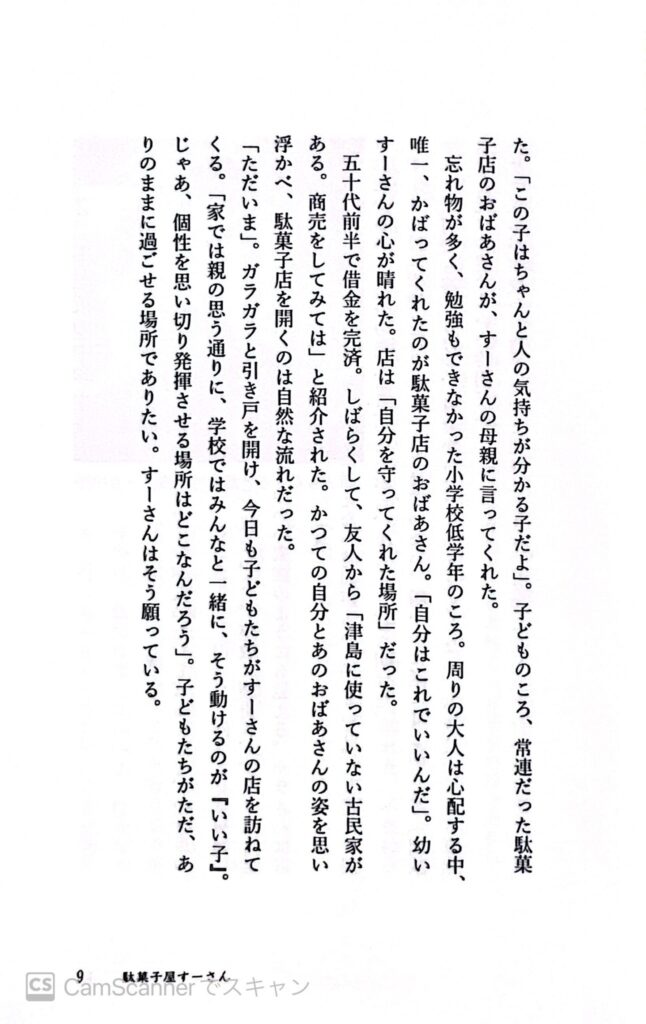 た。「この子はちゃんと人の気持ちが分かる子だよ」。子どものころ、常連だった駄菓
子店のおばあさんが、すーさんの母親に言ってくれた。
忘れ物が多く、勉強もできなかった小学校低学年のころ。周りの大人は心配する中、
唯一、かばってくれたのが駄菓子店のおばあさん。「自分はこれでいいんだ」。幼い
すーさんの心が晴れた。店は「自分を守ってくれた場所」だった。
五十代前半で借金を完済。しばらくして、友人から「津島に使っていない古民家が
ある。商売をしてみては」と紹介された。かつての自分とあのおばあさんの姿を思い
浮かべ、駄菓子店を開くのは自然な流れだった。
「ただいま」。ガラガラと引き戸を開け、今日も子どもたちがすーさんの店を訪ねて
くる。「家では親の思う通りに、学校ではみんなと一緒に、そう動けるのが『いい子』。
じゃあ、個性を思い切り発揮させる場所はどこなんだろう」。子どもたちがただ、あ
りのままに過ごせる場所でありたい。すーさんはそう願っている。
9 駄菓子屋すーさん
CS CamScanner でスキャン